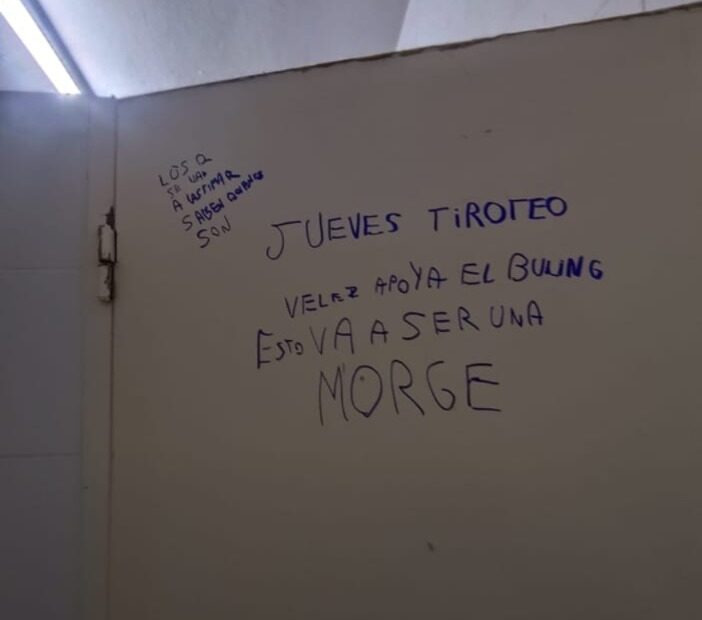 LOS Q
SE VAN
A LASTIMAR
SABEN QUIENES
SON
JUEVES TIROTEO
VELEZ APOYA EL BULING
ESTO VA A SER UNA
MORGE